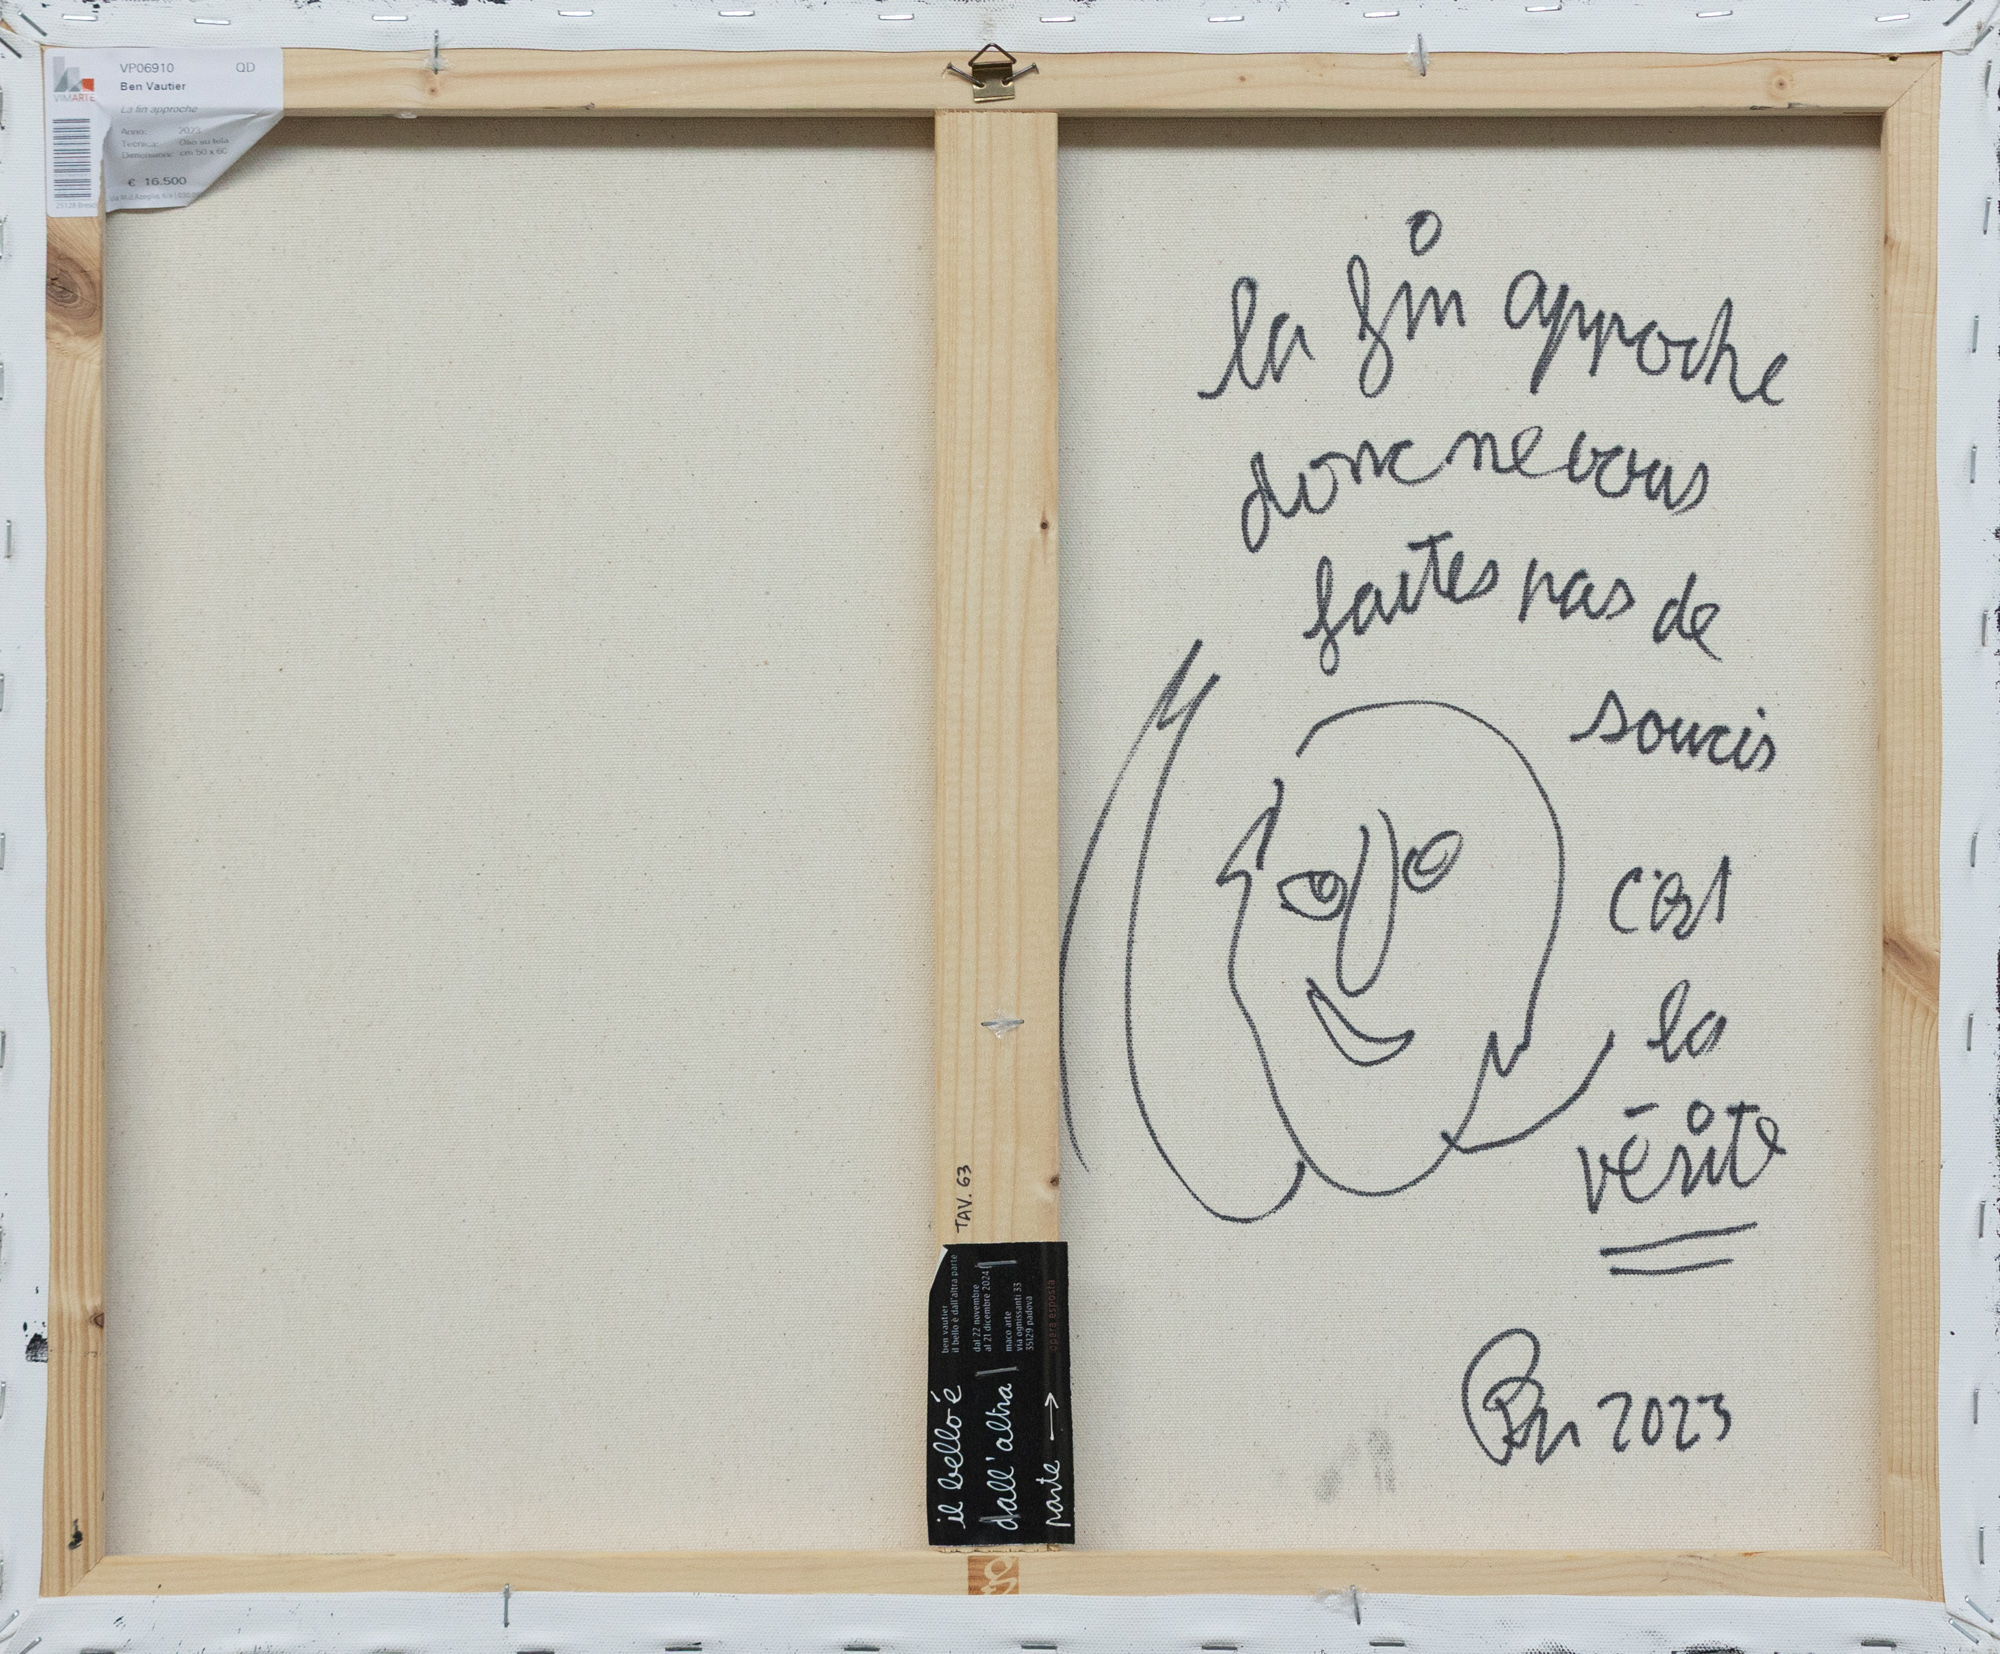 VIMARTE
VP06910 QD
Ben Vautier
La fin approche
Anno: 2023
Tecnica: Olio su tela
Dimensione: cm 50 x 60
€ 16.500
la fin approche
donc ne vous
faites pas de
soucis
c'est
la
vérite
Ben 2023
TAV. 63
ben vautier
il bello è dall'altra parte
dal 22 novembre
al 21 dicembre 2024
maco arte
via ognissanti 33
35129 padova
opera esposta
il bello é
dall'altra
parte →